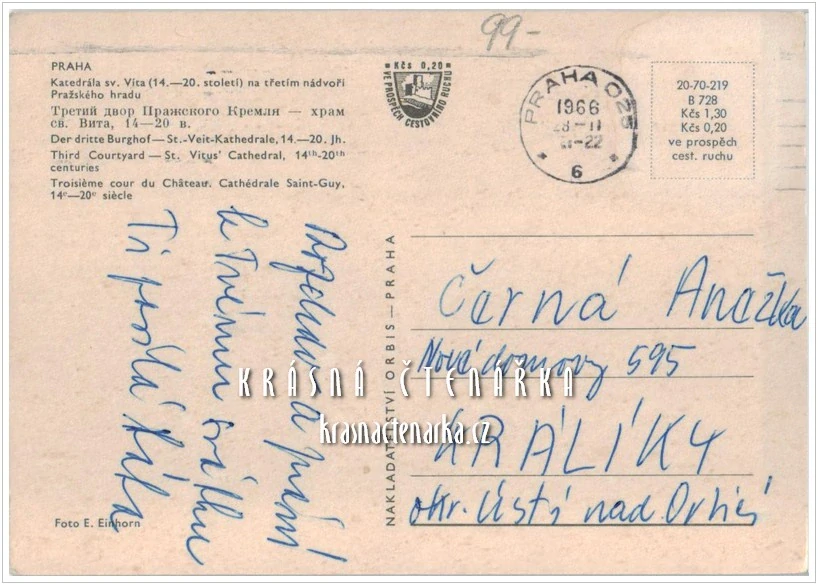 99-
PRAHA
Katedrála sv. Víta (14.—20. století) na třetím nádvoří
Pražského hradu
Третий двор Пражского Кремля — храм
св. Вита, 14—20 в.
Der dritte Burghof — St.-Veit-Kathedrale, 14.—20. Jh.
Third Courtyard — St. Vitus' Cathedral, 14th-20th
centuries
Troisième cour du Château. Cathédrale Saint-Guy,
14e—20e siècle
Kčs 0,20
VE PROSPĚCH CESTOVNÍHO RUCHU
PRAHA 025
1966
6
20-70-219
B 728
Kčs 1,30
Kčs 0,20
ve prospěch
cest. ruchu
a přání
k Tvému svátku
Ti posílá Káťa
NAKLADATELSTVÍ ORBIS — PRAHA
Černá Anežka
Nové domovy 595
KRÁLÍKY
okr. Ústí nad Orlicí
KRÁSNÁ ČTENÁŘKA
krasnactenarka.cz
Foto E. Einhorn